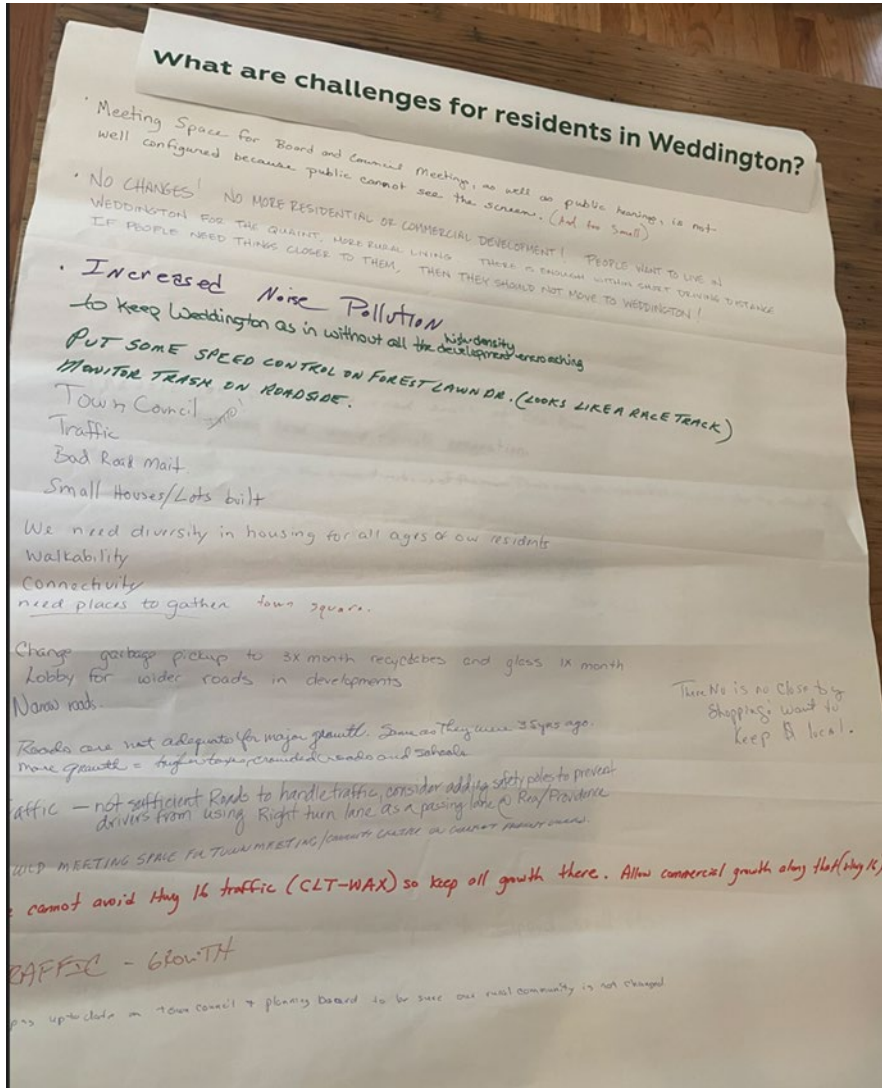 What are challenges for residents in Weddington?
· Meeting Space for Board and Council Meetings, as well as public hearing, is not
well configured because public cannot see the screen. (And too small)
· NO CHANGES! NO MORE RESIDENTIAL OR COMMERCIAL DEVELOPMENT! PEOPLE WANT TO LIVE IN
WEDDINGTON FOR THE QUAINT, MORE RURAL LIVING THERE IS ENOUGH WITHIN SHORT DRIVING DISTANCE
IF PEOPLE NEED THINGS CLOSER TO THEM, THEN THEY SHOULD NOT MOVE TO WEDDINGTON!
· Increased Noise Pollution
to keep Weddington as in without all the high density development encroaching
PUT SOME SPEED CONTROL ON FOREST LAWN DR. (LOOKS LIKE A RACE TRACK)
MONITOR TRASH ON ROADSIDE.
Town Council
Traffic
Bad Road Mait.
Small Houses/Lots built
We need diversity in housing for all ages of our residents
Walkability
Connectivity
need places to gather town square.
Change garbage pickup to 3x month recyclebes and glass 1x month
Lobby for wider roads in developments
Narrow roads.
There No is no close by
Shopping! want to
keep $ local.
Roads are not adequate for major growth. Same as they were 35yrs ago.
more growth = higher taxes, crowded roads and schools
affic — not sufficient Roads to handle traffic, consider adding safety poles to prevent
drivers from using Right turn lane as a passing lane @ Rea/Providence
MEETING SPACE FOR TOWN MEETING/
cannot avoid Hwy 16 traffic (CLT-WAX) so keep all growth there. Allow commercial growth along that (Hwy 16)
RAFFIC - GROWTH
up to date on town council + planning board to be sure our rural community is not changed